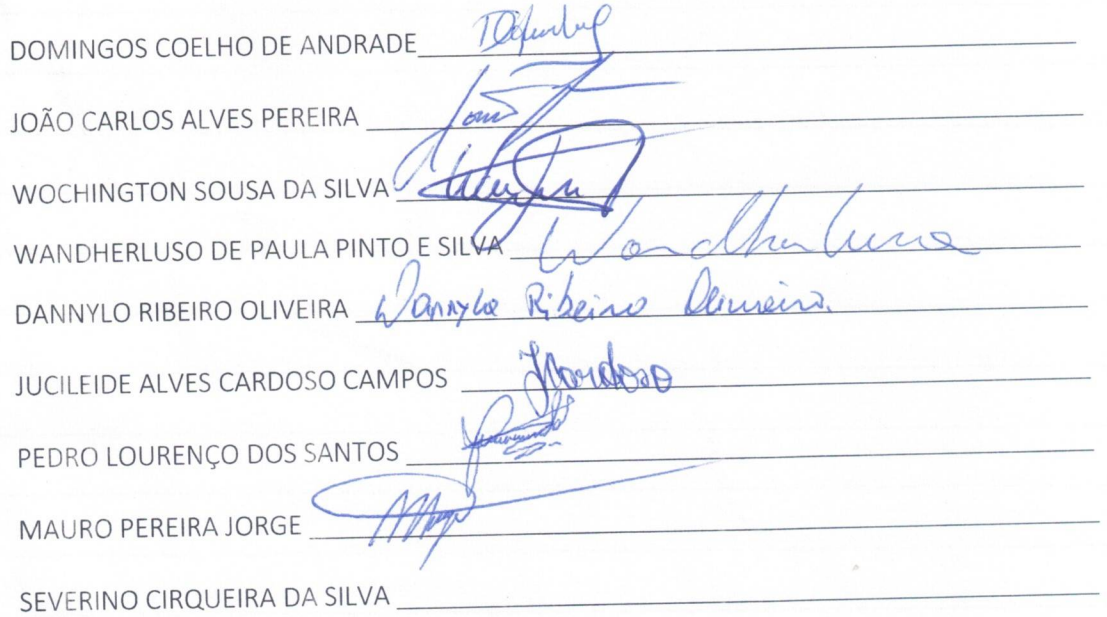 DOMINGOS COELHO DE ANDRADE
JOÃO CARLOS ALVES PEREIRA
WOCHINGTON SOUSA DA SILVA
WANDHERLUSO DE PAULA PINTO E SILVA
DANNYLO RIBEIRO OLIVEIRA Dannylo Ribeiro Oliveira.
JUCILEIDE ALVES CARDOSO CAMPOS JCardoso
PEDRO LOURENÇO DOS SANTOS
MAURO PEREIRA JORGE
SEVERINO CIRQUEIRA DA SILVA